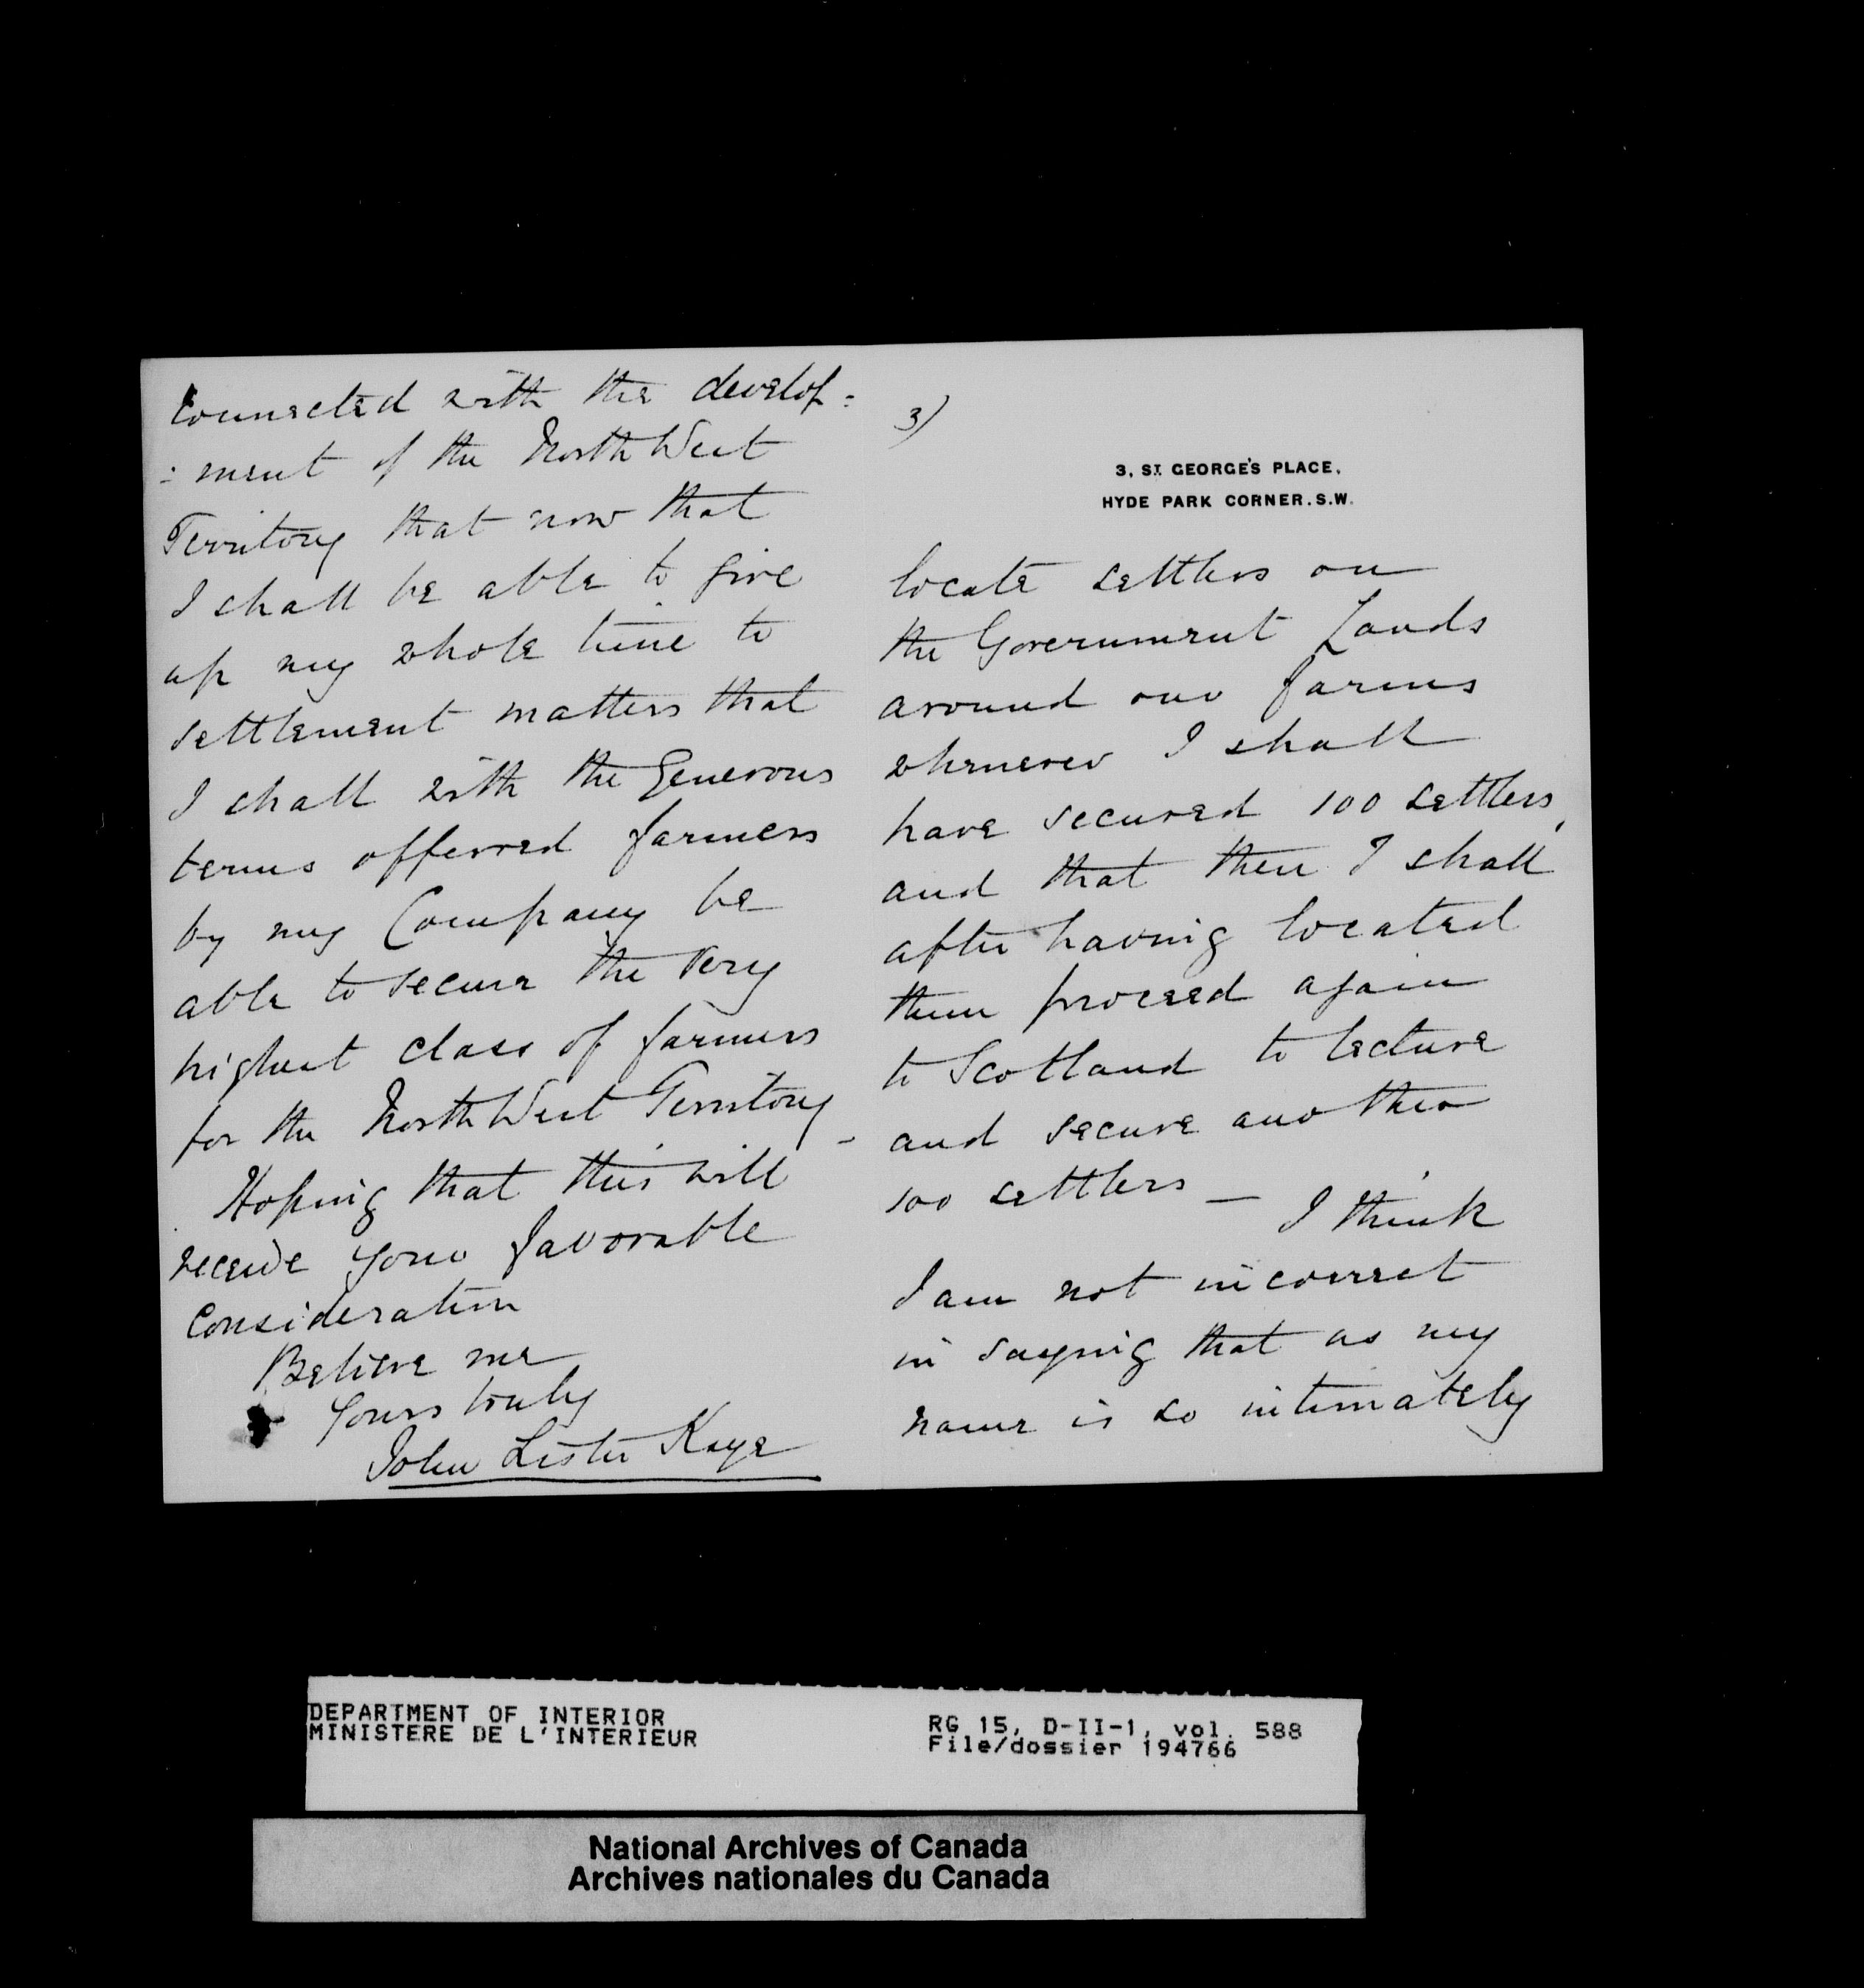 3)
3, ST. GEORGE'S PLACE,
HYDE PARK CORNER. S.W.
locate settlers on
the Government Lands
around our farms
whenever I shall
have secured 100 settlers,
and that then I shall
after having located
them proceed again
to Scotland to lecture
and secure another
100 settlers — I think
I am not incorrect
in saying that as my
name is so intimately
connected with the develop=
=ment of the North West
Territory that now that
I shall be able to give
up my whole time to
settlement matters that
I shall with the Generous
terms offerred farmers
by my Company be
able to secure the very
highest class of farmers
for the North West Territory -
Hoping that this will
receive your favorable
Consideration
Believe me
Yours truly
John Lister Kaye
DEPARTMENT OF INTERIOR
MINISTERE DE L'INTERIEUR
RG 15, D-II-1, vol. 588
File/dossier 194766
National Archives of Canada
Archives nationales du Canada